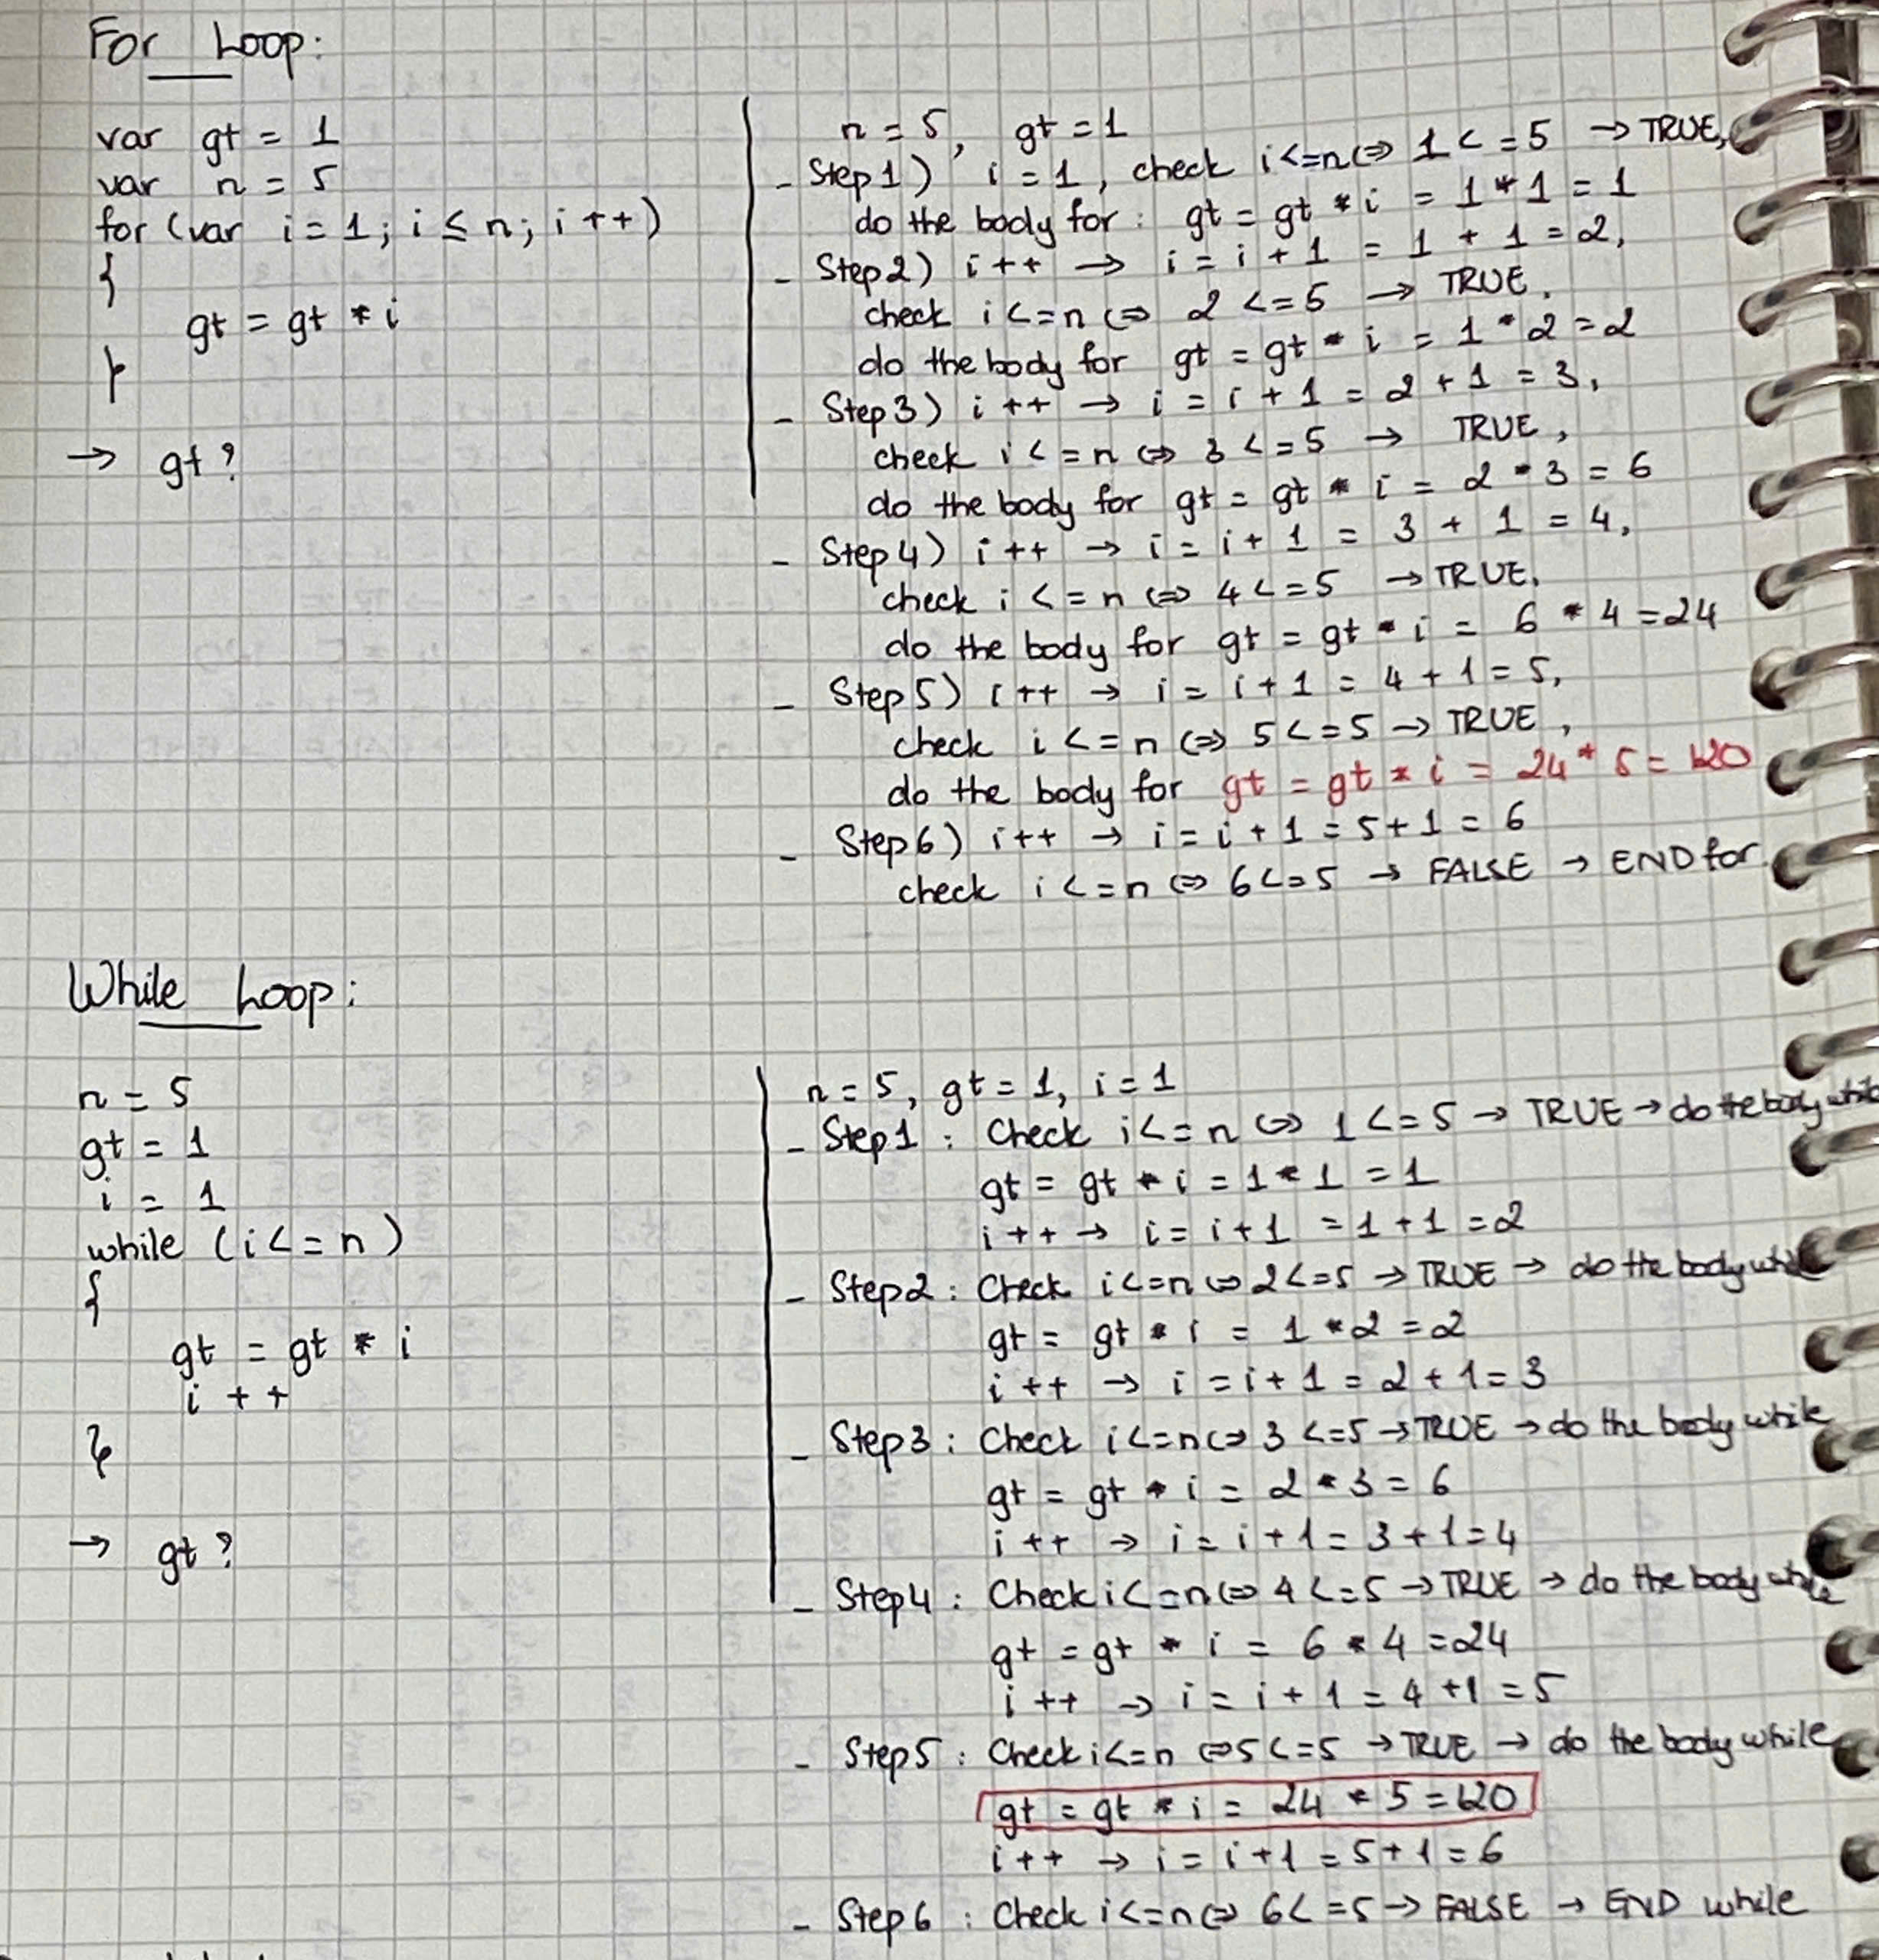 For Loop:
var gt = 1
var n = 5
for (var i = 1; i ≤ n; i ++)
{
gt = gt * i
}
→ gt?
n = 5, gt = 1
- Step 1) i = 1, check i <= n ⇔ 1 <= 5 → TRUE,
do the body for: gt = gt * i = 1 * 1 = 1
- Step 2) i ++ → i = i + 1 = 1 + 1 = 2,
check i <= n ⇔ 2 <= 5 → TRUE,
do the body for gt = gt * i = 1 * 2 = 2
- Step 3) i ++ → i = i + 1 = 2 + 1 = 3,
check i <= n ⇔ 3 <= 5 → TRUE,
do the body for gt = gt * i = 2 * 3 = 6
- Step 4) i ++ → i = i + 1 = 3 + 1 = 4,
check i <= n ⇔ 4 <= 5 → TRUE,
do the body for gt = gt * i = 6 * 4 = 24
- Step 5) i ++ → i = i + 1 = 4 + 1 = 5,
check i <= n ⇔ 5 <= 5 → TRUE,
do the body for gt = gt * i = 24 * 5 = 120
- Step 6) i ++ → i = i + 1 = 5 + 1 = 6
check i <= n ⇔ 6 <= 5 → FALSE → END for
While Loop:
n = 5
gt = 1
i = 1
while (i <= n)
{
gt = gt * i
i ++
}
→ gt?
n = 5, gt = 1, i = 1
- Step 1 : Check i <= n ⇔ 1 <= 5 → TRUE → do the body while
gt = gt * i = 1 * 1 = 1
i ++ → i = i + 1 = 1 + 1 = 2
- Step 2 : Check i <= n ⇔ 2 <= 5 → TRUE → do the body while
gt = gt * i = 1 * 2 = 2
i ++ → i = i + 1 = 2 + 1 = 3
- Step 3 : Check i <= n ⇔ 3 <= 5 → TRUE → do the body while
gt = gt * i = 2 * 3 = 6
i ++ → i = i + 1 = 3 + 1 = 4
- Step 4 : Check i <= n ⇔ 4 <= 5 → TRUE → do the body while
gt = gt * i = 6 * 4 = 24
i ++ → i = i + 1 = 4 + 1 = 5
- Step 5 : Check i <= n ⇔ 5 <= 5 → TRUE → do the body while
gt = gt * i = 24 * 5 = 120
i ++ → i = i + 1 = 5 + 1 = 6
- Step 6 : Check i <= n ⇔ 6 <= 5 → FALSE → END while